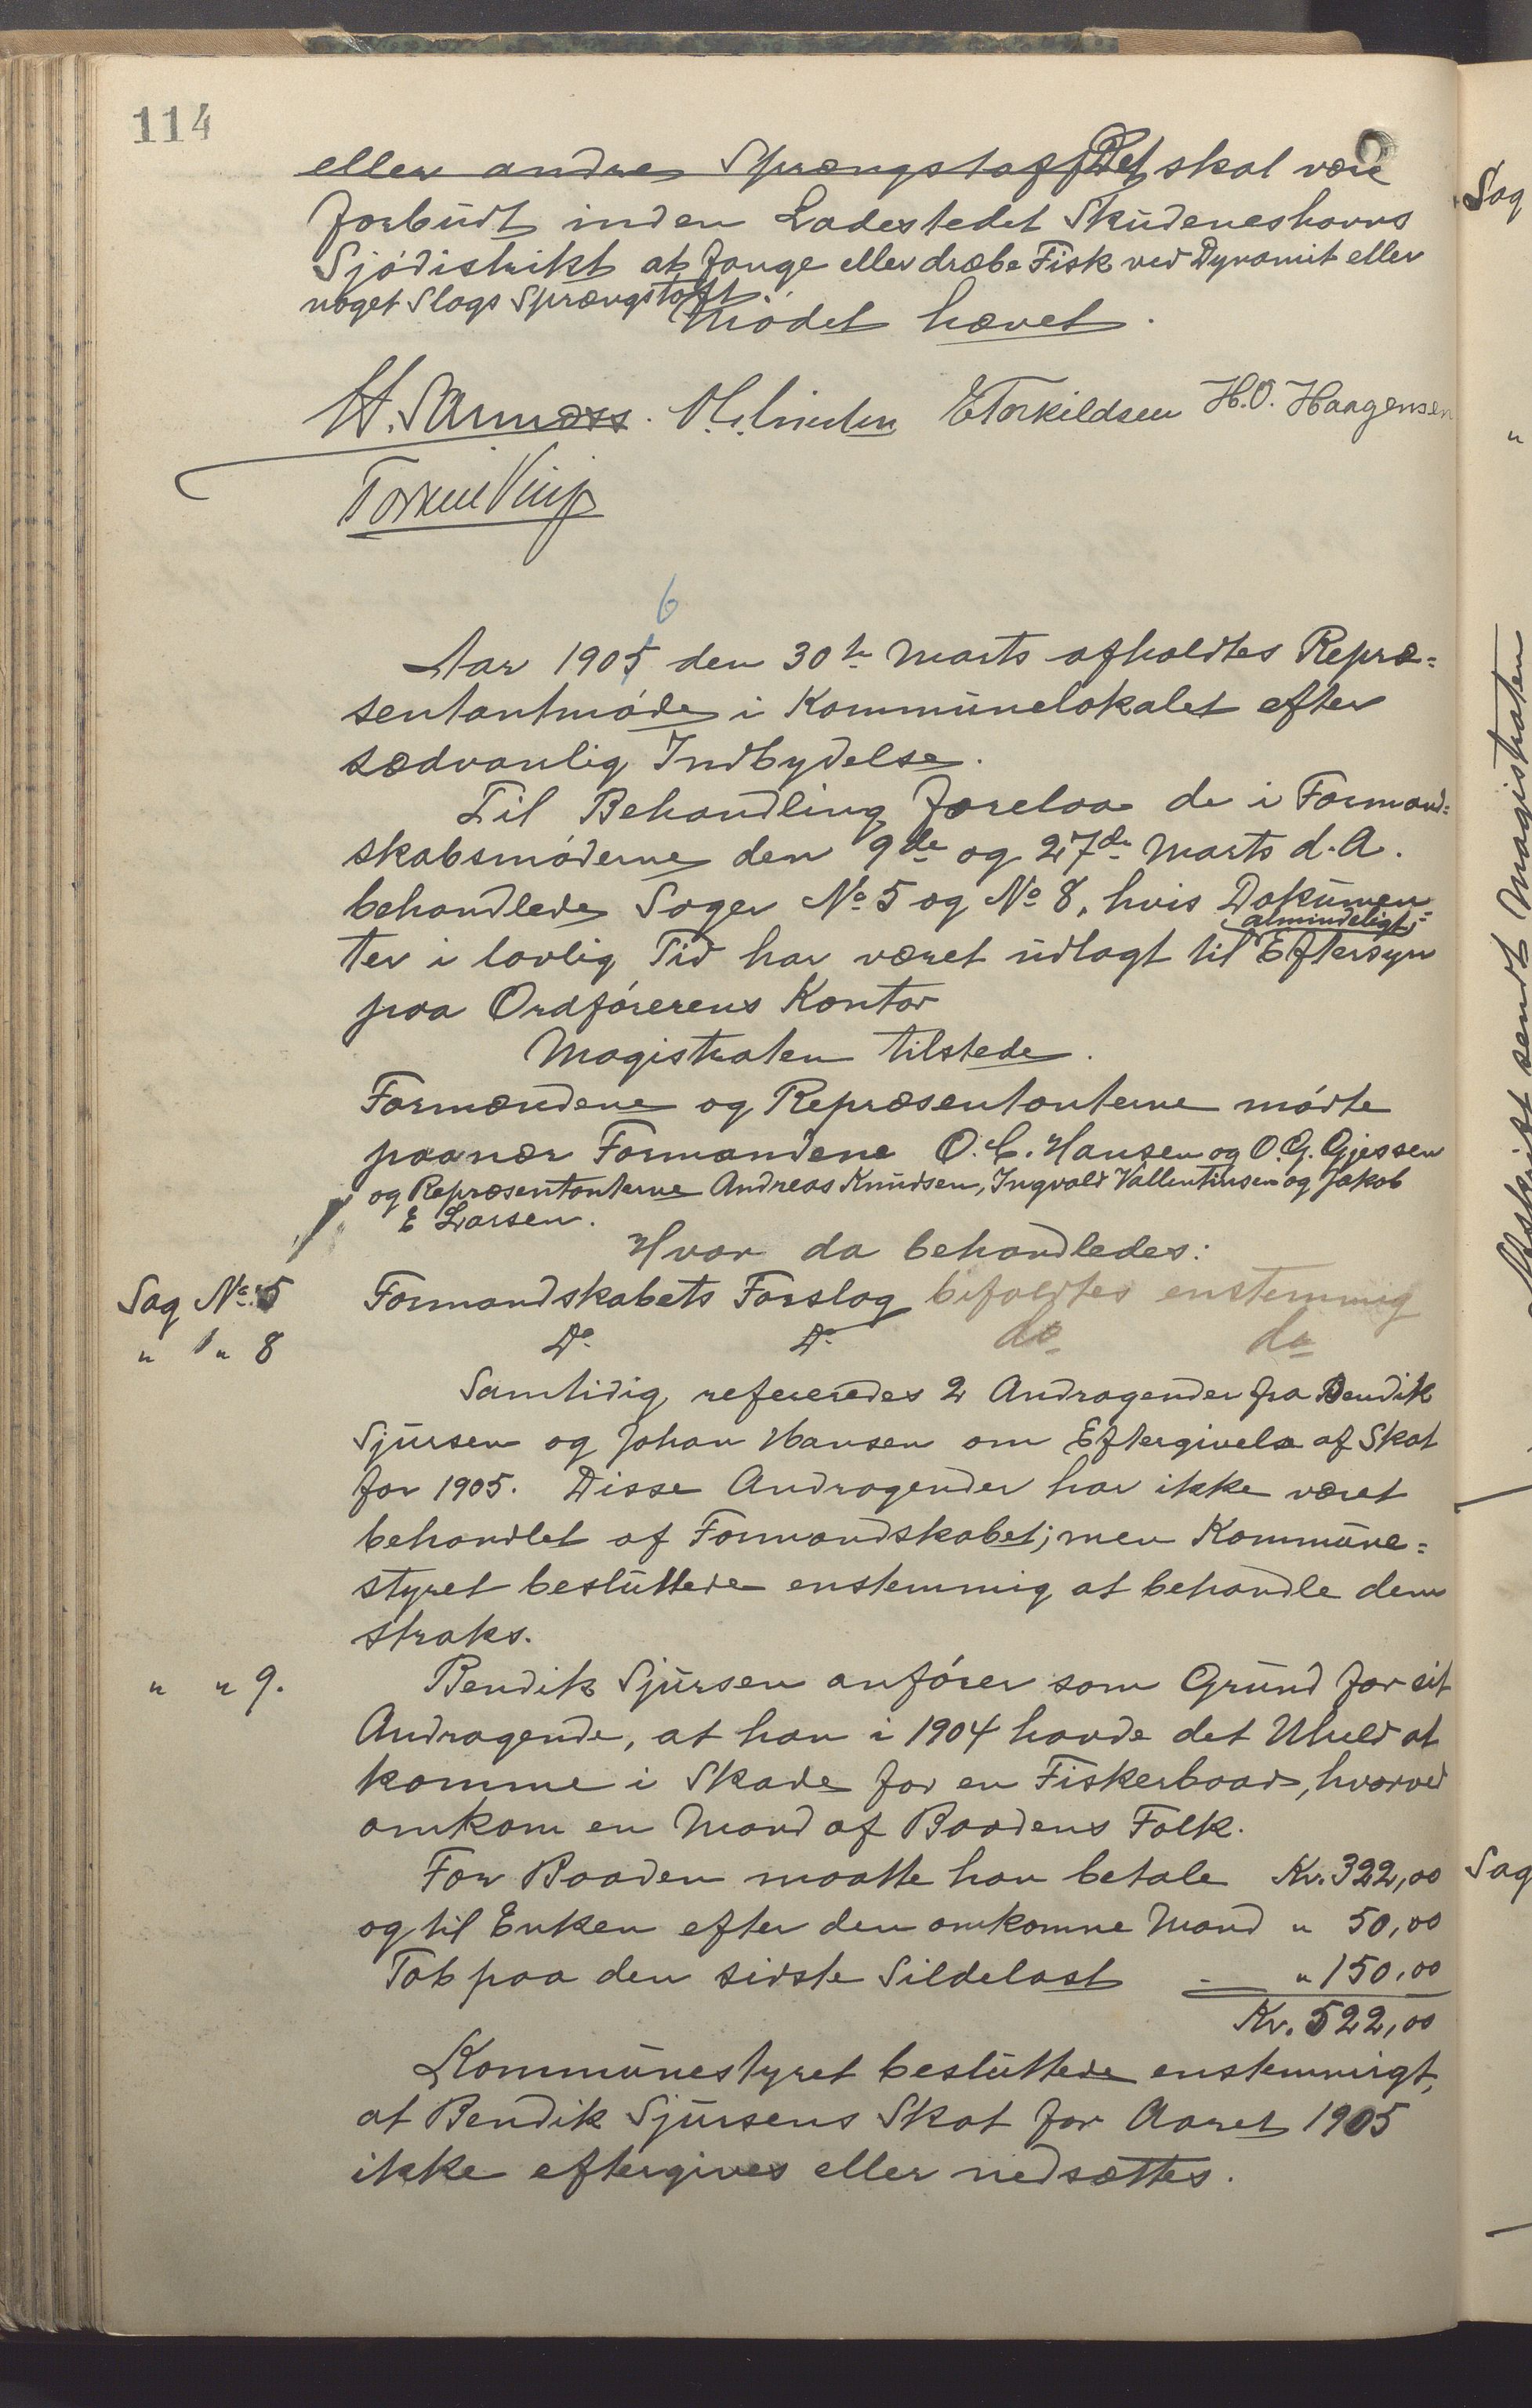 114
eller andre Sprængstoffe Det skal være
forbudt inden Ladestedet Skudeneshavns
Sjødistrikt at fange eller dræbe Fisk ved Dynamit eller
noget Slags Sprængstoff.
Mødet hævet.
E Torkildsen H.O. Haagensen
6
Aar 1905 den 30te Marts afholdtes Repræ=
sentantmøde i Kommunelokalet efter
sædvanlig Indbydelse.
Til Behandling forelaa de i Formand=
skabsmøderne den 9de og 27de Marts d.A.
behandlede Sager No 5 og No 8, hvis Dokumen=
almindeligt
ter i lovlig Tid har været udlagt til Eftersyn
paa Ordførerens Kontor
Magistraten tilstede.
Formændene og Repræsentanterne mødte
paanær Formandene O. C. Hansen og O. G. Gjessen
og Repræsentanterne Andreas Knudsen, Ingvald Vallentinsen og Jakob
E Larsen.
Hvor da behandledes:
Sag No. 5 Formandskabets Forslag bifaldtes enstemmig
" " 8 Do. Do. do do
Samtidig refereredes 2 Andragender fra Bendik
Sjursen og Johan Hansen om Eftergivelse af Skat
for 1905. Disse Andragender har ikke været
behandlet af Formandskabet; men Kommune=
styret besluttede enstemmig at behandle dem
straks.
" " 9. Bendik Sjursen anfører som Grund for sit
Andragende, at han i 1904 havde det Uheld at
komme i Skade for en Fiskerbaad, hvorved
omkom en Mand af Baadens Folk.
For Baaden maatte han betale Kr. 322,00
og til Enken efter den omkomne Mand " 50,00
Tab paa den sidste Sildelast - " 150,00
Kr. 522,00
Kommunestyret besluttede enstemmigt,
at Bendik Sjursens Skat for Aaret 1905
ikke eftergives eller nedsættes.
Sag
"
sendt Magistraten
Sag